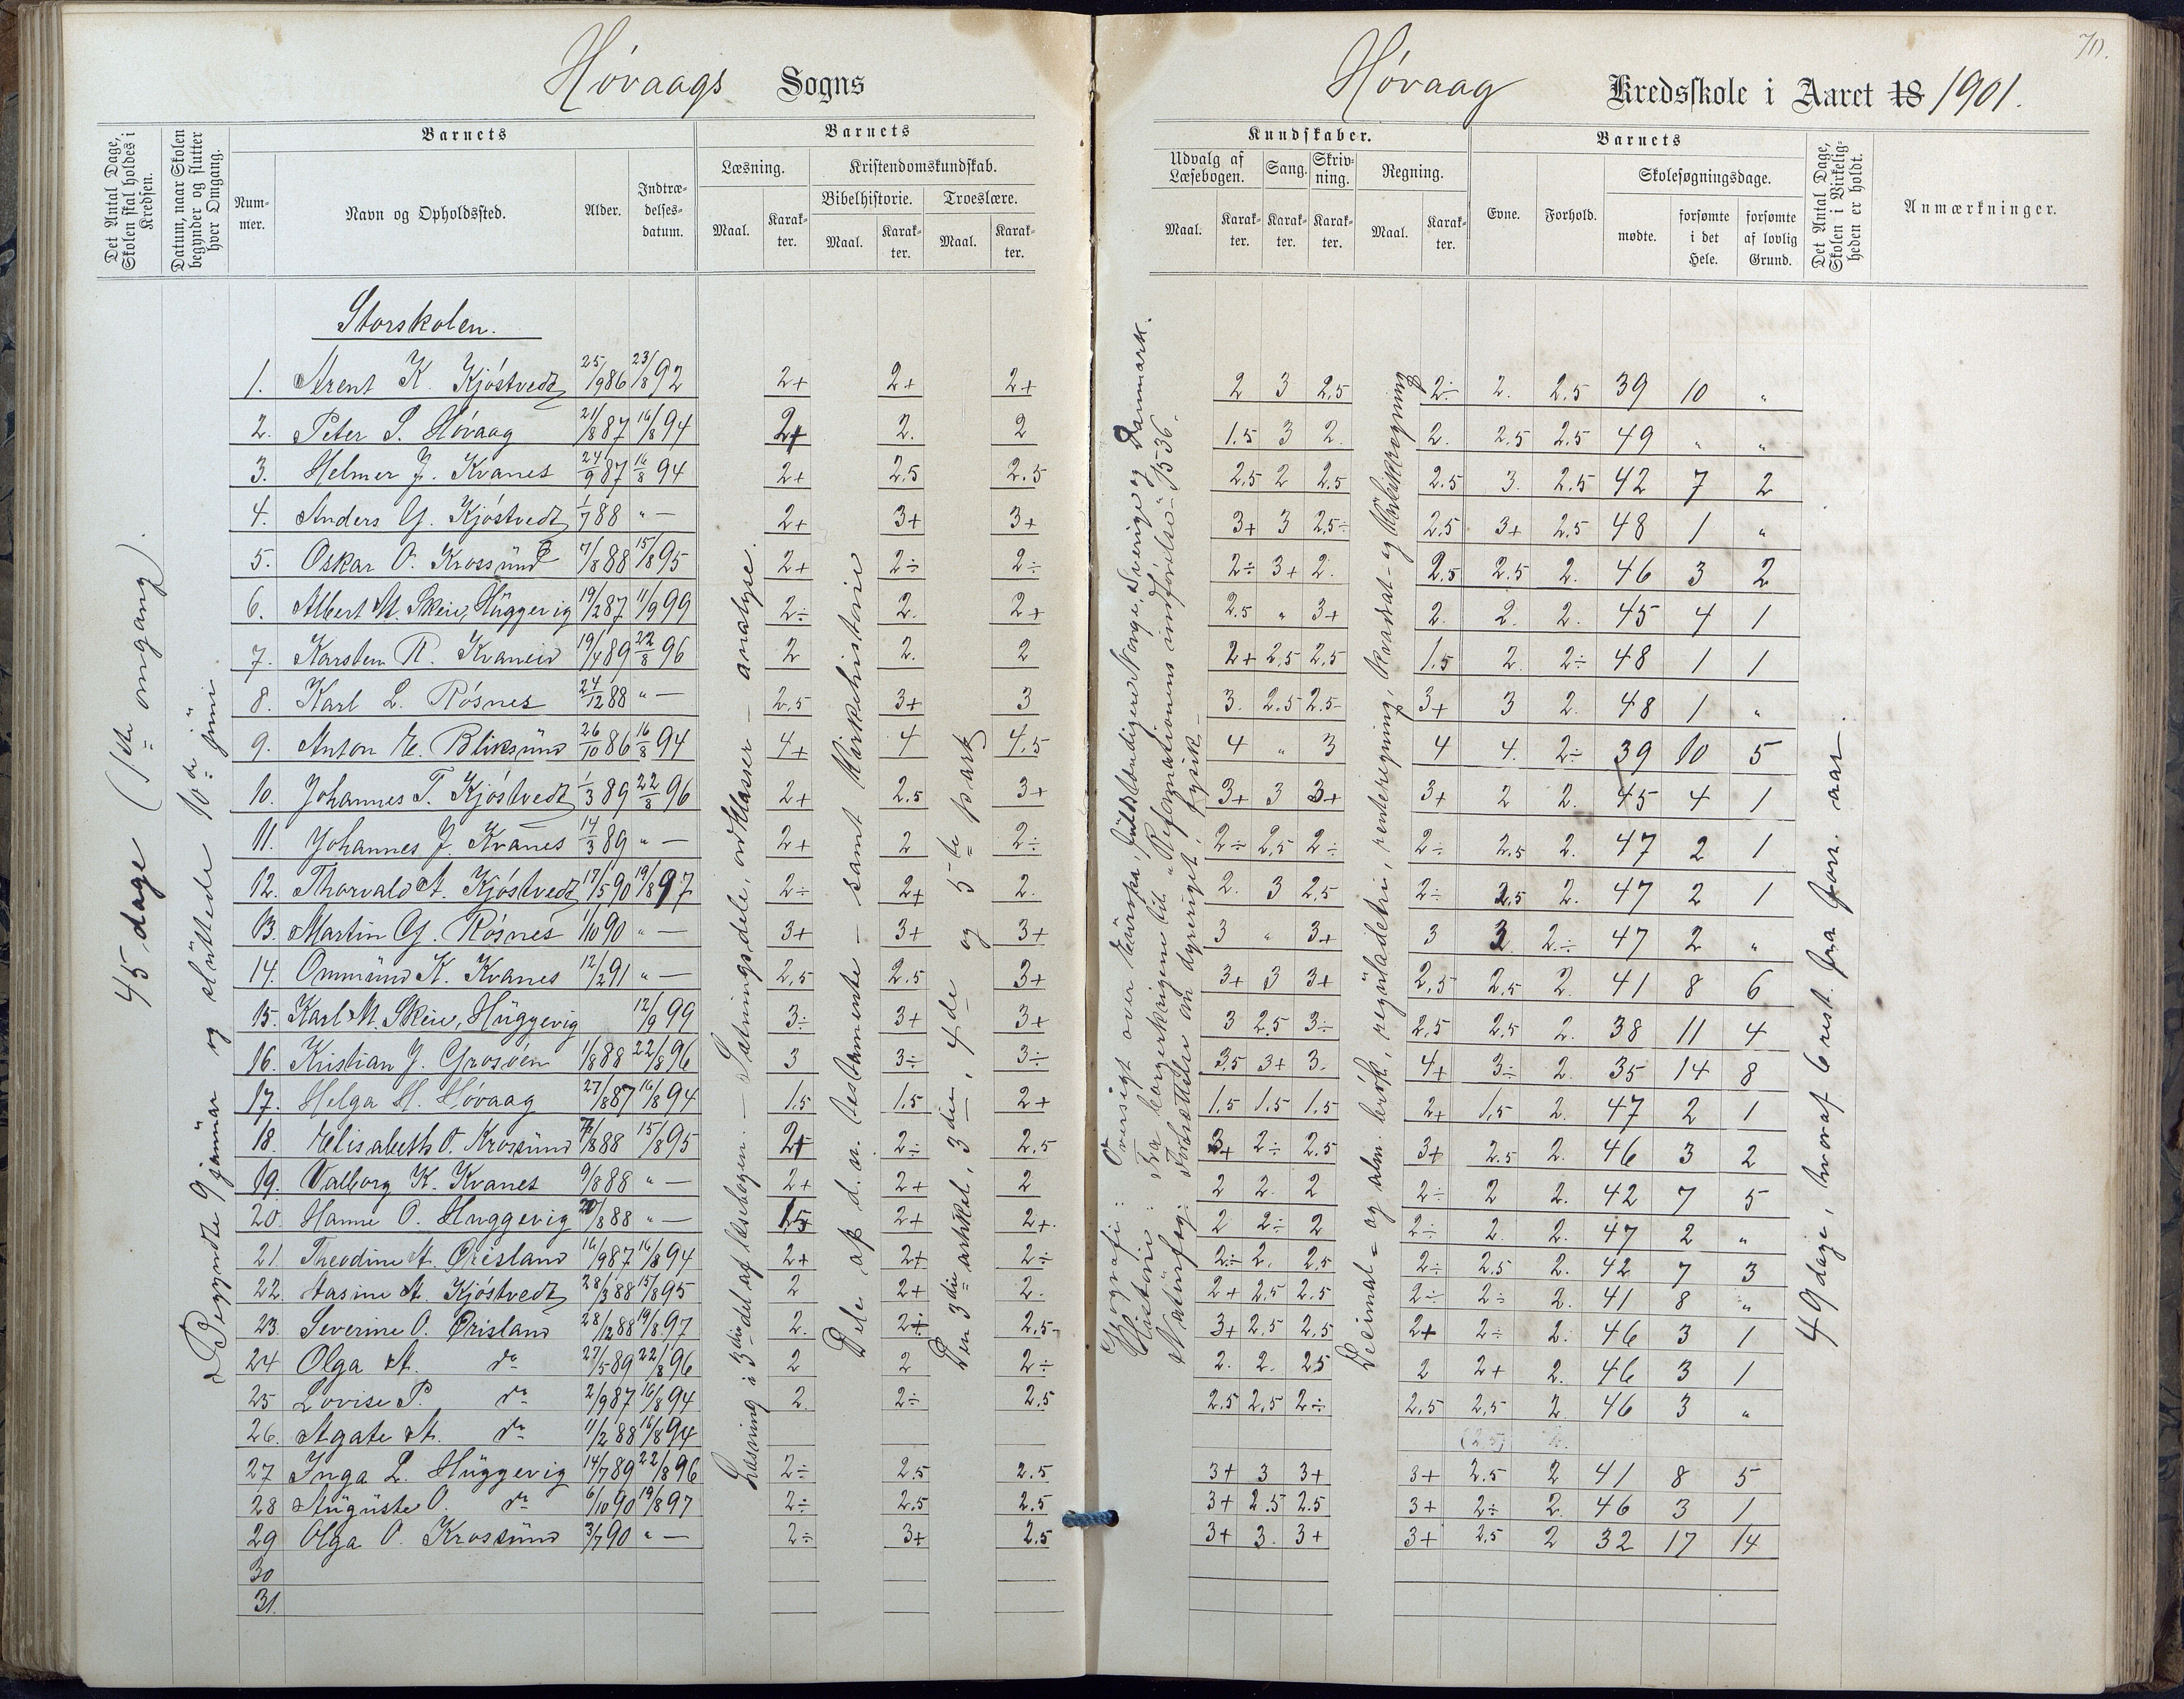 Høvaags Sogns
Det Antal Dage, Skolen skal holdes i Kredsen.
Datum, naar Skolen begynder og slutter hver Omgang.
Barnets
Nummer.
Navn og Opholdssted.
Alder.
Indtrædelsesdatum.
Barnets
Læsning.
Maal.
Karakter.
Kristendomskundskab.
Bibelhistorie.
Maal.
Karakter.
Troeslære.
Maal.
Karakter.
45 dage (1ste omgang).
Begyndte 9 januar og sluttede 10de juni
Storskolen.
1. Arent K. Kjøstvedt 25/1986 23/892 2+ 2+ 2+
2. Peter S. Høvaag 21/887 16/894 2+ 2. 2
3. Helmer J. Kvanes 24/987 16/894 2+ 2.5 2.5
4. Anders G. Kjøstvedt 1/788 " — 2+ 3+ 3+
5. Oskar O. Krossund 7/888 15/895 2+ 2÷ 2÷
6. Albert M. Skeie, Huggevig 19/287 11/999 2÷ 2. 2+
7. Karsten R. Kvaneid 19/489 22/896 2 2. 2
8. Karl L. Røsnes 24/1288 " — 2,5 3+ 3
9. Anton E. Bliksund 26/1086 16/894 4+ 4 4.5
10. Johannes T. Kjøstvedt 1/389 22/896 2+ 2.5 3+
11. Johannes J. Kvanes 14/389 " — 2+ 2 2÷
12. Thorvald A. Kjøstvedt 17/590 19/897 2÷ 2+ 2.
13. Martin G. Røsnes 1/1090 " — 3+ 3+ 3+
14. Ommund K. Kvanes 12/291 " — 2,5 2.5 3+
15. Karl M. Skeie, Huggevig 12/999 3÷ 3+ 3+
16. Kristian J. Grosøen 1/888 22/896 3 3÷ 3÷
17. Helga H. Høvaag 27/887 16/894 1.5 1.5 2+
18. Elisabeth O. Krossund 7/888 15/895 2+ 2÷ 2.5
19. Valborg K. Kvanes 9/888 " — 2+ 2+ 2
20. Hanne O. Huggevig 20/888 " — 1.5 2+ 2+.
21. Theodine A. Ørisland 16/987 16/894 2+ 2+ 2÷
22. Aasine A. Kjøstvedt 28/388 15/895 2 2+ 2.
23. Severine O. Ørisland 28/1288 19/897 2. 2÷ 2.5
24 Olga A. do 27/589 22/896 2 2 2÷
25 Lovise P. do 2/987 16/894 2. 2÷ 2.5
26. Agate A. do 11/288 16/894
27 Inga L. Huggevig 14/789 22/896 2÷ 2.5 2.5
28 Auguste O. do 6/1090 19/897 2÷ 2.5 2.5
29 Olga O. Krossund 3/790 " — 2÷ 3+ 2.5
30
31.
Læsning i 3die del af læsebogen. — Sætningsdele, ordklasser — analyse.
Dele af d. n. testamente — samt kirkehistorie
Den 3die artikel, 3die, 4de og 5te part
70.
Høvaag Kredsskole i Aaret 18 1901.
Kundskaber.
Udvalg af Læsebogen.
Maal.
Karakter.
Sang.
Karakter.
Skrivning.
Karakter.
Regning.
Maal.
Karakter.
Barnets
Evne.
Forhold.
Skolesøgningsdage.
mødte.
forsømte i det Hele.
forsømte af lovlig Grund.
Det Antal Dage, Skolen i Virkeligheden er holdt.
Anmærkninger.
Geografi: Oversigt over Europa, fuldstændigere Norge, Sverige og Danmark.
Historie: Fra borgerkrigene til "Reformationens indførelse" 1536.
Naturfag: Fortsættelse om dyreriget, fysik
Decimal- og alm. brøk, reguladetri, renteregning, kvadrat- og kubikregning
2 3 2.5 2÷ 2. 2.5 39 10 "
1.5 3 2. 2. 2.5 2.5 49 " "
2.5 2 2.5 2.5 3. 2.5 42 7 2
3+ 3 2.5÷ 2.5 3+ 2.5 48 1 "
2÷ 3+ 2. 2.5 2.5 2. 46 3 2
2.5 " 3+ 2. 2. 2. 45 4 1
2+ 2.5 2.5 1.5 2. 2÷ 48 1 1
3. 2.5 2.5 3+ 3 2. 48 1 "
4 " 3 4 4. 2÷ 39 10 5
3+ 3 3+ 3+ 2 2. 45 4 1
2÷ 2,5 2÷ 2÷ 2.5 2. 47 2 1
2. 3 2.5 2÷ 2.5 2. 47 2 1
3 " 3+ 3 3 2.÷ 47 2 "
3+ 3 3+ 2.5 2.5 2. 41 8 6
3 2.5 3÷ 2.5 2.5 2. 38 11 4
3.5 3+ 3. 4+ 3÷ 2. 35 14 8
1.5 1.5 1.5 2+ 1.5 2. 47 2 1
3+ 2÷ 2.5 3+ 2.5 2. 46 3 2
2 2. 2 2÷ 2 2. 42 7 5
2 2÷ 2 2÷ 2. 2. 47 2 "
2÷ 2. 2.5 2÷ 2.5 2. 42 7 3
2+ 2.5 2.5 2÷ 2÷ 2. 41 8 "
3+ 2.5 2.5 2+ 2÷ 2. 46 3 1
2. 2. 2.5 2 2+ 2. 46 3 1
2.5 2.5 2÷ 2.5 2.5 2. 46 3 "
(2.5)
3+ 3 3+ 3+ 2.5 2 41 8 5
3+ 2.5 2.5 3+ 2÷ 2. 46 3 1
3+ 3. 3+ 3+ 2.5 2 32 17 14
49 dage, hvoraf 6 rest. fra forr. aar.